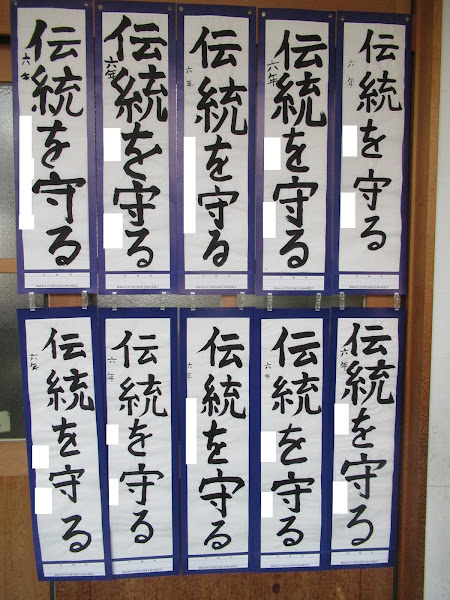 伝統を守る
六年
伝統を守る
六年
伝統を守る
六年
伝統を守る
六年
伝統を守る
六年
伝統を守る
六年
伝統を守る
六年
伝統を守る
六年
伝統を守る
六年
伝統を守る
六年